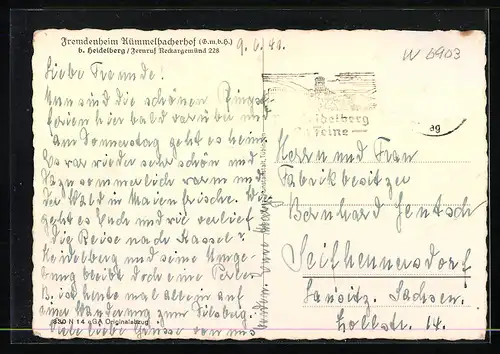 Fremdenheim Kümmelbacherhof (G.m.b.H.)
b. Heidelberg / Fernruf Neckargemünd 228
9. 6. 41.
W 6903
Liebe Freunde!
Nun sind die schönen Pfingst-
ferien hier bald vorüber und
am Donnerstag geht es heim.
Es war wieder sehr schön und
dazu sommerlich warm und
der Wald in Maienfrische. Wie
geht es Euch und wie verlief
die Reise nach Kassel?
Heidelberg und seine Umge-
bung bleibt doch eine Perle.
B. ist heute mal allein auf
einer Wanderung zum Dilsberg.
Viele liebe Grüsse von uns
Heidelberg
Herrn und Frau
Fabrikbesitzer
Bernhard Jentsch
Seifhennersdorf
Lausitz. Sachsen.
Zollstr. 14.
Originalabzug